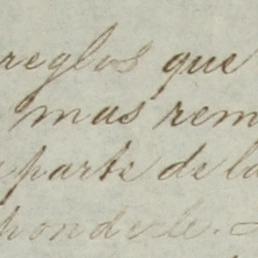 reglos que
mas rem
parte de la
ponderle.